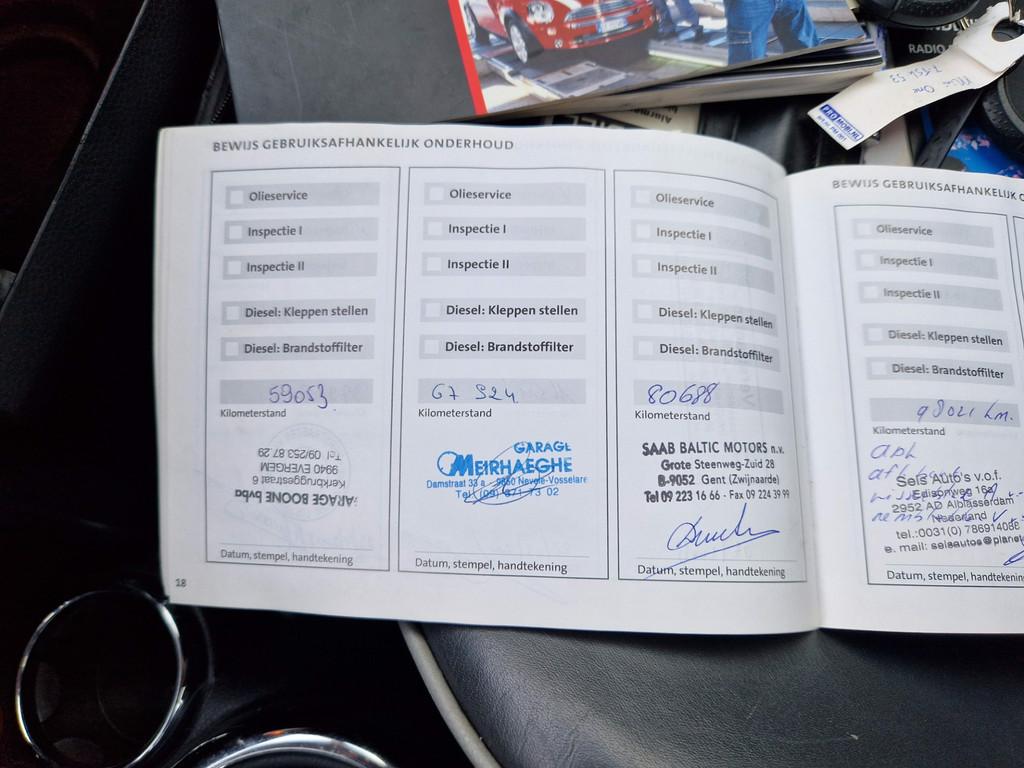 RADIO
Mini One
PROMOBI.NL
BEWIJS GEBRUIKSAFHANKELIJK ONDERHOUD
Olieservice
Inspectie I
Inspectie II
Diesel: Kleppen stellen
Diesel: Brandstoffilter
59053
Kilometerstand
GARAGE BOONE bvba
Kerkbruggestraat
9940 EVERGEM
Tel 09/253 87 29
Datum, stempel, handtekening
18
Olieservice
Inspectie I
Inspectie II
Diesel: Kleppen stellen
Diesel: Brandstoffilter
67 924
Kilometerstand
GARAGE
MEIRHAEGHE
Damstraat 33 a - 9850 Nevele-Vosselare
Tel (09) 371 73 02
Datum, stempel, handtekening
Olieservice
Inspectie I
Inspectie II
Diesel: Kleppen stellen
Diesel: Brandstoffilter
80688
Kilometerstand
SAAB BALTIC MOTORS n.v.
Grote Steenweg-Zuid 28
B-9052 Gent (Zwijnaarde)
Tel 09 223 16 66 - Fax 09 224 39 99
Datum, stempel, handtekening
BEWIJS GEBRUIKSAFHANKELIJK
Olieservice
Inspectie I
Inspectie II
Diesel: Kleppen stellen
Diesel: Brandstoffilter
98021 km.
Kilometerstand
apk
Sels Auto's v.o.f.
Edisonweg
2952 AD Alblasserdam
Nederland
tel.:0031(0) 786914086
e. mail: selsautos@planet
Datum, stempel, handtekenin